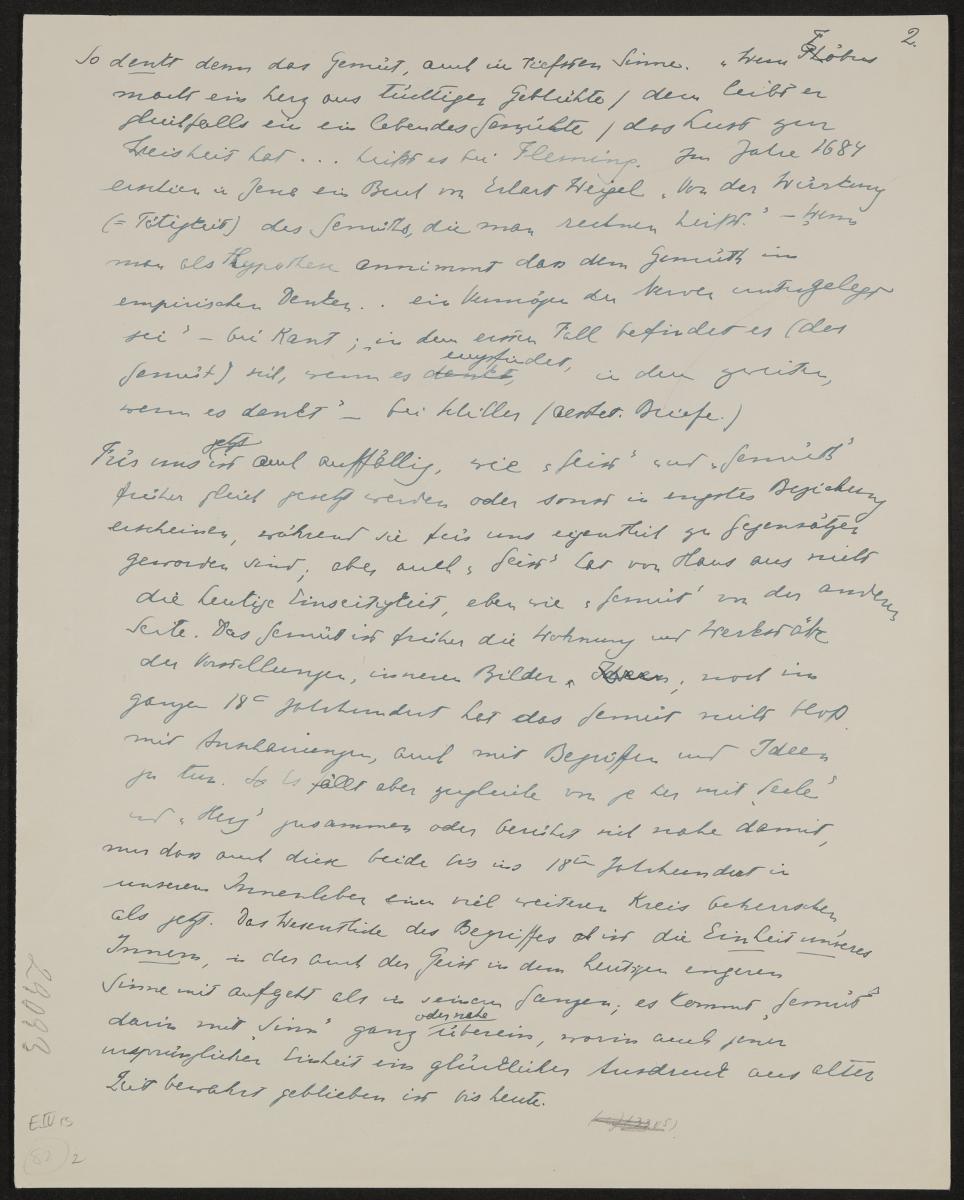 2.
So denkt denn das Gemüt, auch in tiefstem Sinne. „Wenn Phöbus
macht ein Herz aus tüchtigem Geblüthe / dem leibt er
gleichfalls ein ein lebendes Gemüthe / das Lust zur
Weisheit hat... heißt es bei Fleming. Im Jahre 1684
erschien in Jena ein Buch von Erhart Weigel „Von der Würckung
(= Tätigkeit) des Gemüths, die man rechnen heißt." – Wenn
man als Hypothese annimmt dass dem Gemüth im
empirischen Denken.. ein Vermögen der Nerven untergelegt
sei" – bei Kant; „in dem ersten Fall befindet es (das
empfindet,
Gemüt) sich, wenn es denkt, in dem zweiten,
wenn es denkt" – bei Schiller (aesthet. Briefe.)
jetzt
Für uns ist auch auffällig, wie „Geist" und „Gemüth"
früher gleich gesetzt werden oder sonst in engster Beziehung
erscheinen, während sie für uns eigentlich zu Gegensätzen
geworden sind; aber auch „Geist" hat von Haus aus nicht
die heutige Einseitigkeit, eben wie „Gemüt" von der anderen
Seite. Das Gemüt ist früher die Wohnung und Werkstätte
der Vorstellungen, inneren Bilder, Ideen; noch im
ganzen 18ᵉ Jahrhundert hat das Gemüt nicht bloß
mit Anschauungen, auch mit Begriffen und Ideen
zu tun. Es fällt aber zugleich von je her mit „Seele"
und „Herz" zusammen oder berührt sich nahe damit,
nur dass auch diese beide bis ins 18te Jahrhundert in
unserem Innenleben einen viel weiteren Kreis beherrschen
als jetzt. Das Wesentliche des Begriffes ist die Einheit unseres
Innern, in der auch der Geist in dem heutigen engeren
Sinne mit aufgeht als in seinem Ganzen; es kommt „Gemüt"
oder nahe
darin mit „Sinn" ganz überein, worin auch jener
ursprünglichen Einheit ein glücklicher Ausdruck aus alter
Zeit bewahrt geblieben ist bis heute.
E IV 13
82
2